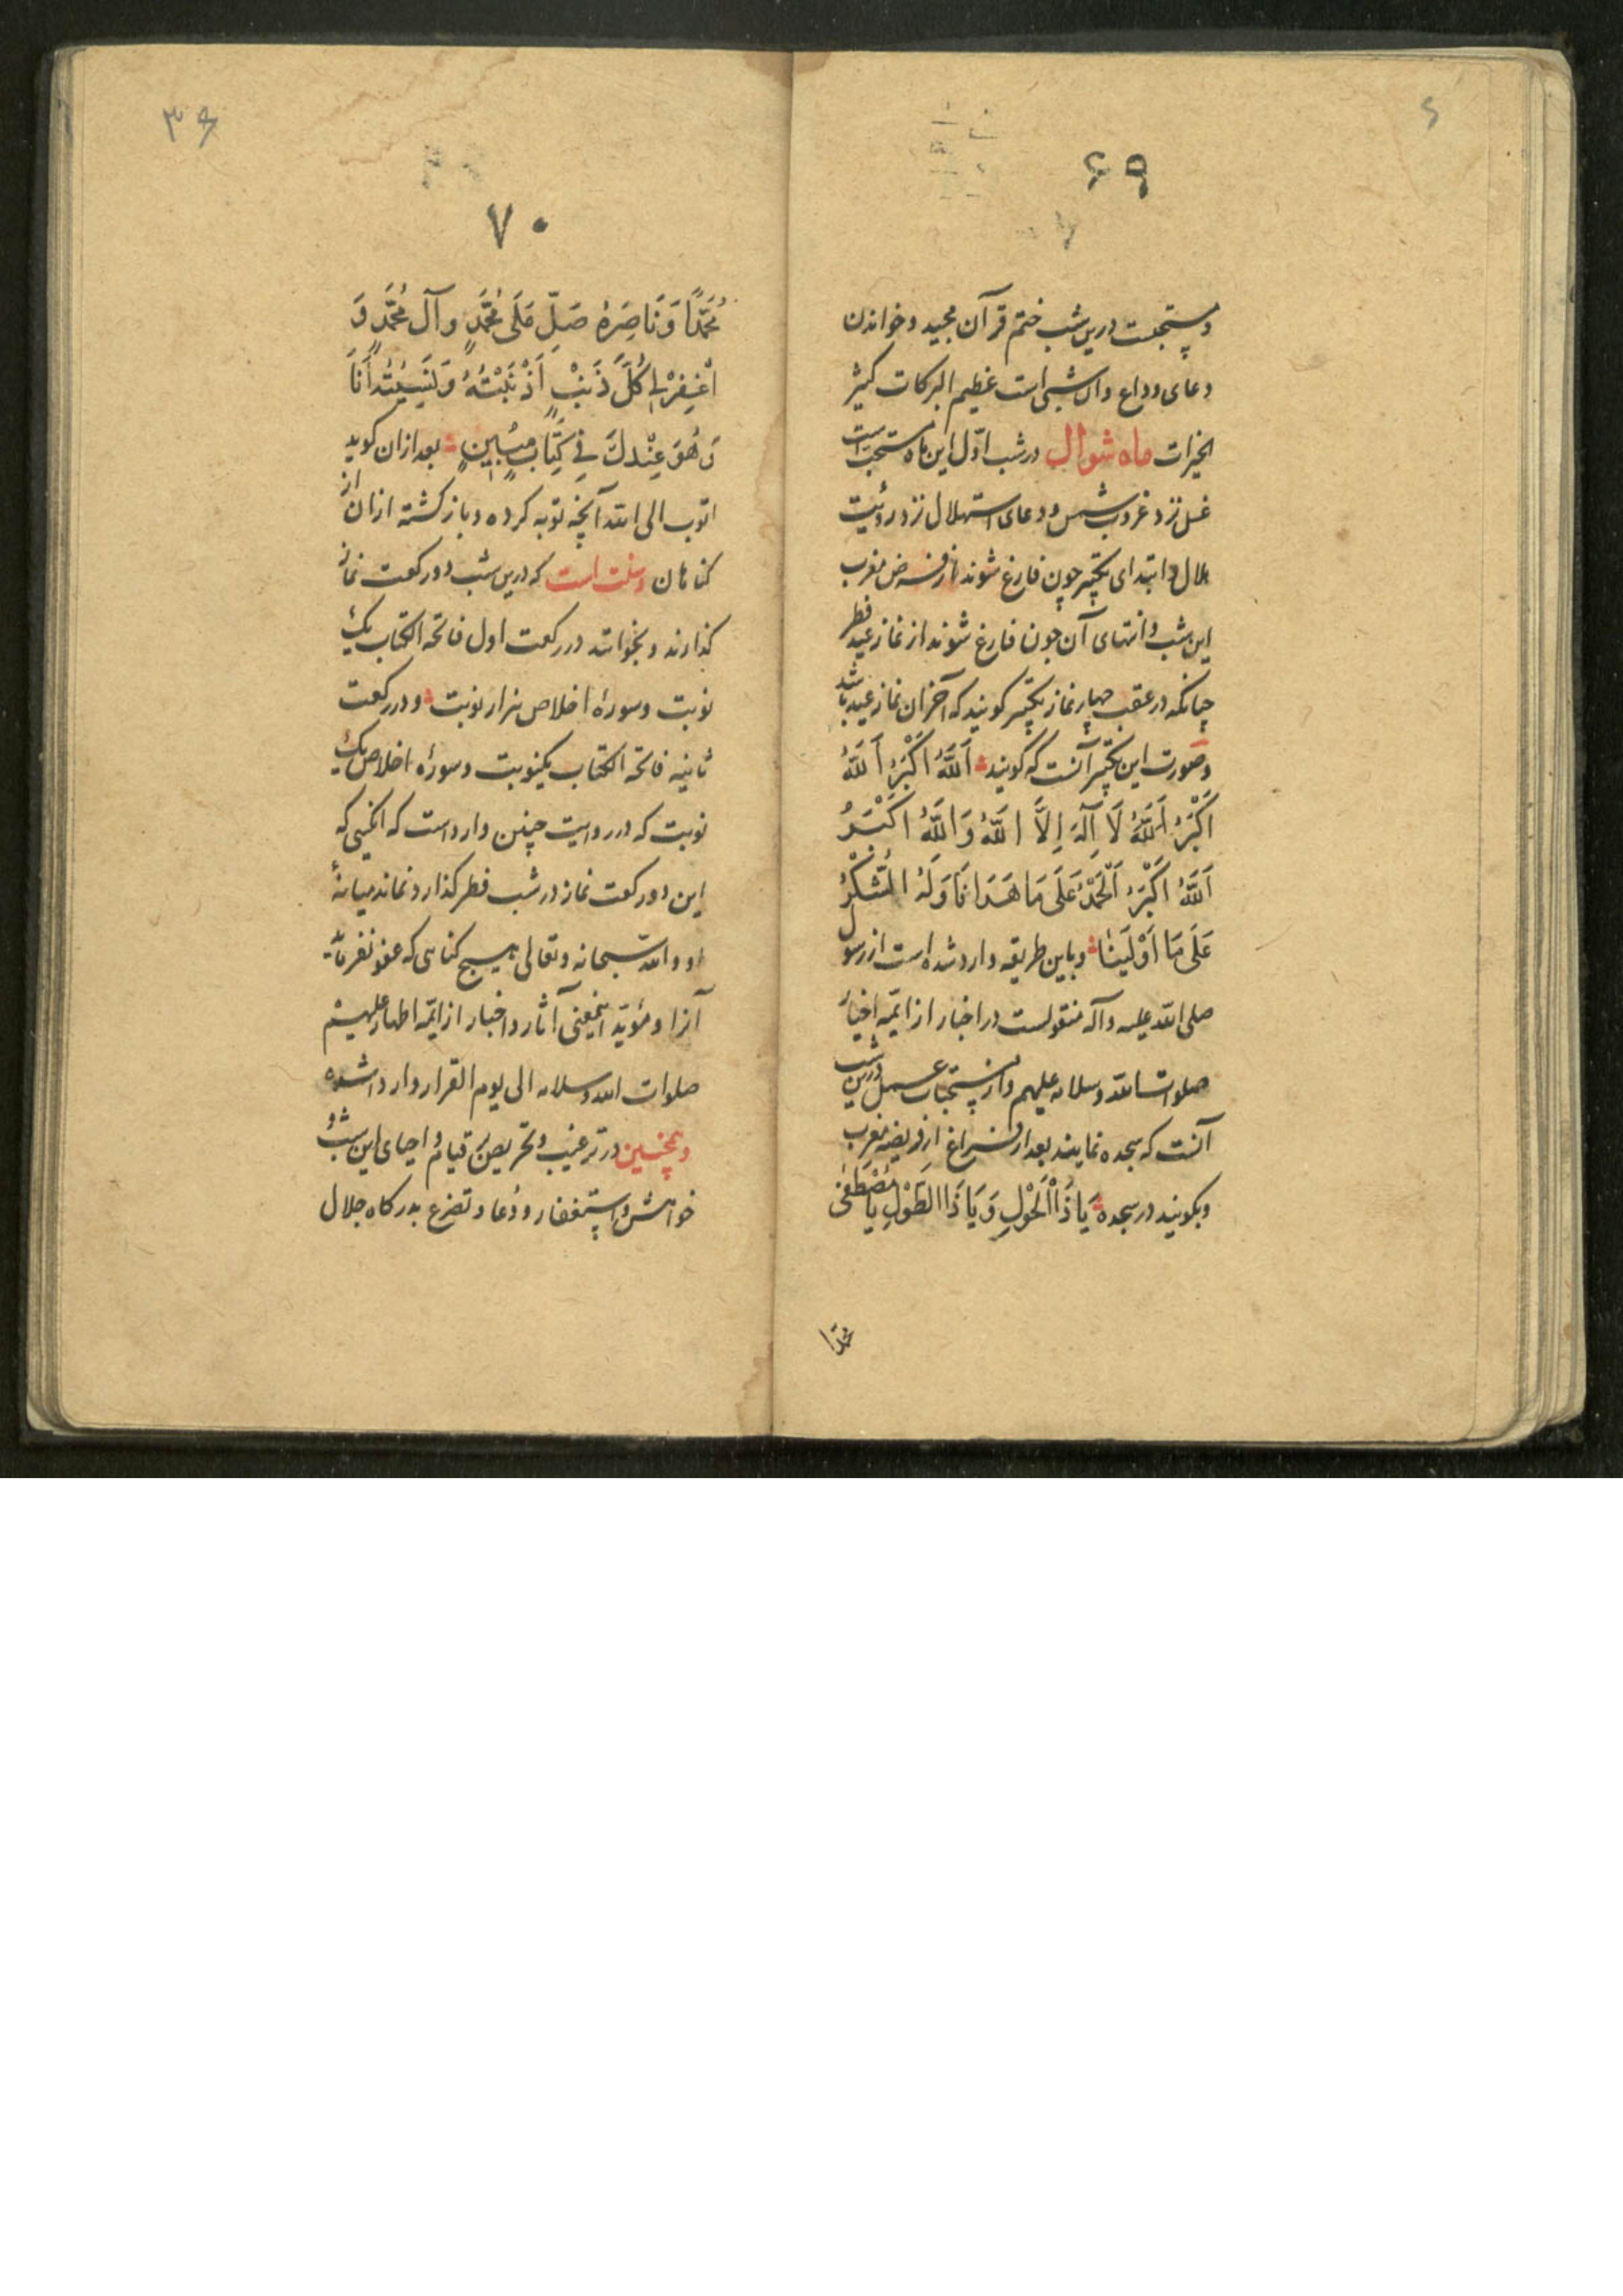 ۶۹
ومستحبست درین شب ختم قرآن مجید و خواندن
دعای وداع وآن شبی است عظیم البرکات کثیر
الخیرات ماه شوال در شب اوّل این ماه مستحب است
غسل نزد غروب شمس ودعای استهلال نزد رؤیت
هلال و ابتدای تکبیر چون فارغ شوند از فرض مغرب
این شب وانتهای آن چون فارغ شوند از نماز عید فطر
چنانکه در عقب چهار نماز تکبیر کویند که آخر آن نماز عید باشد
وصورت این تکبیر آنست که کویند اَللّٰهُ اَکْبَرُ اَللّٰهُ
اَکْبَرُ اَللّٰهُ لَا اِلٰهَ اِلَّا اللّٰهُ وَاللّٰهُ اَکْبَرُ
اَللّٰهُ اَکْبَرُ اَلْحَمْدُ عَلَی مَا هَدَانَا وَلَهُ الشُّکْرُ
عَلَی مَا اَوْلَیٰنَا وباین طریقه وارد شده است از رسول
صلی الله علیه وآله منقولست در اخبار از ائمّه اخیار
صلوات الله وسلامه علیهم واز مستحبات عمل درین شب
آنست که سجده نمایند بعد از فراغ از فریضه مغرب
وبکویند در سجده یَا ذَاالْحَوْلِ وَیَا ذَاالطَّوْلِ یَا مُصْطَفِیَ
محمدا
۳۶
۷۰
مُحَمَّدًا وَنَاصِرَهُ صَلِّ عَلَی مُحَمَّدٍ وآلِ مُحَمَّدٍ وَ
اغْفِرْ لِی کُلَّ ذَنبٍ اَذْنَبْتُهُ وَنَسِیْتُهُ اَنَا
وَهُوَ عِنْدَكَ فِی کِتَابٍ مُبِینٍ بعد ازان کوید
اتوب الی الله آنچه توبه کرده و باز کشته ازان از
کناهان وسنت است که درین شب دو رکعت نماز
کذارند و بخوانند در رکعت اول فاتحه الکتاب یک
نوبت وسورهٔ اخلاص هزار نوبت و در رکعت
ثانیه فاتحه الکتاب یکنوبت وسورهٔ اخلاص یک
نوبت که در روایت چنین وارد است که انکسی که
این دو رکعت نماز در شب فطر کذارد نماند میانهٔ
او و الله سبحانه وتعالی هیچ کناهی که عفو نفرماید
آنرا ومؤیّد اینمعنی آثار واخبار از ائمّه اطهار علیهم
صلوات الله وسلامه الی یوم القرار وارد شده
وهمچنین در ترغیب وتحریص بر قیام واحیای این شب و
خواهش واستغفار و دُعا و تضرع بدرکاه جلال